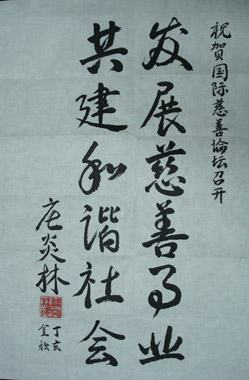 祝贺国际慈善论坛召开
发展慈善事业
共建和谐社会
庄炎林
丁亥
金秋